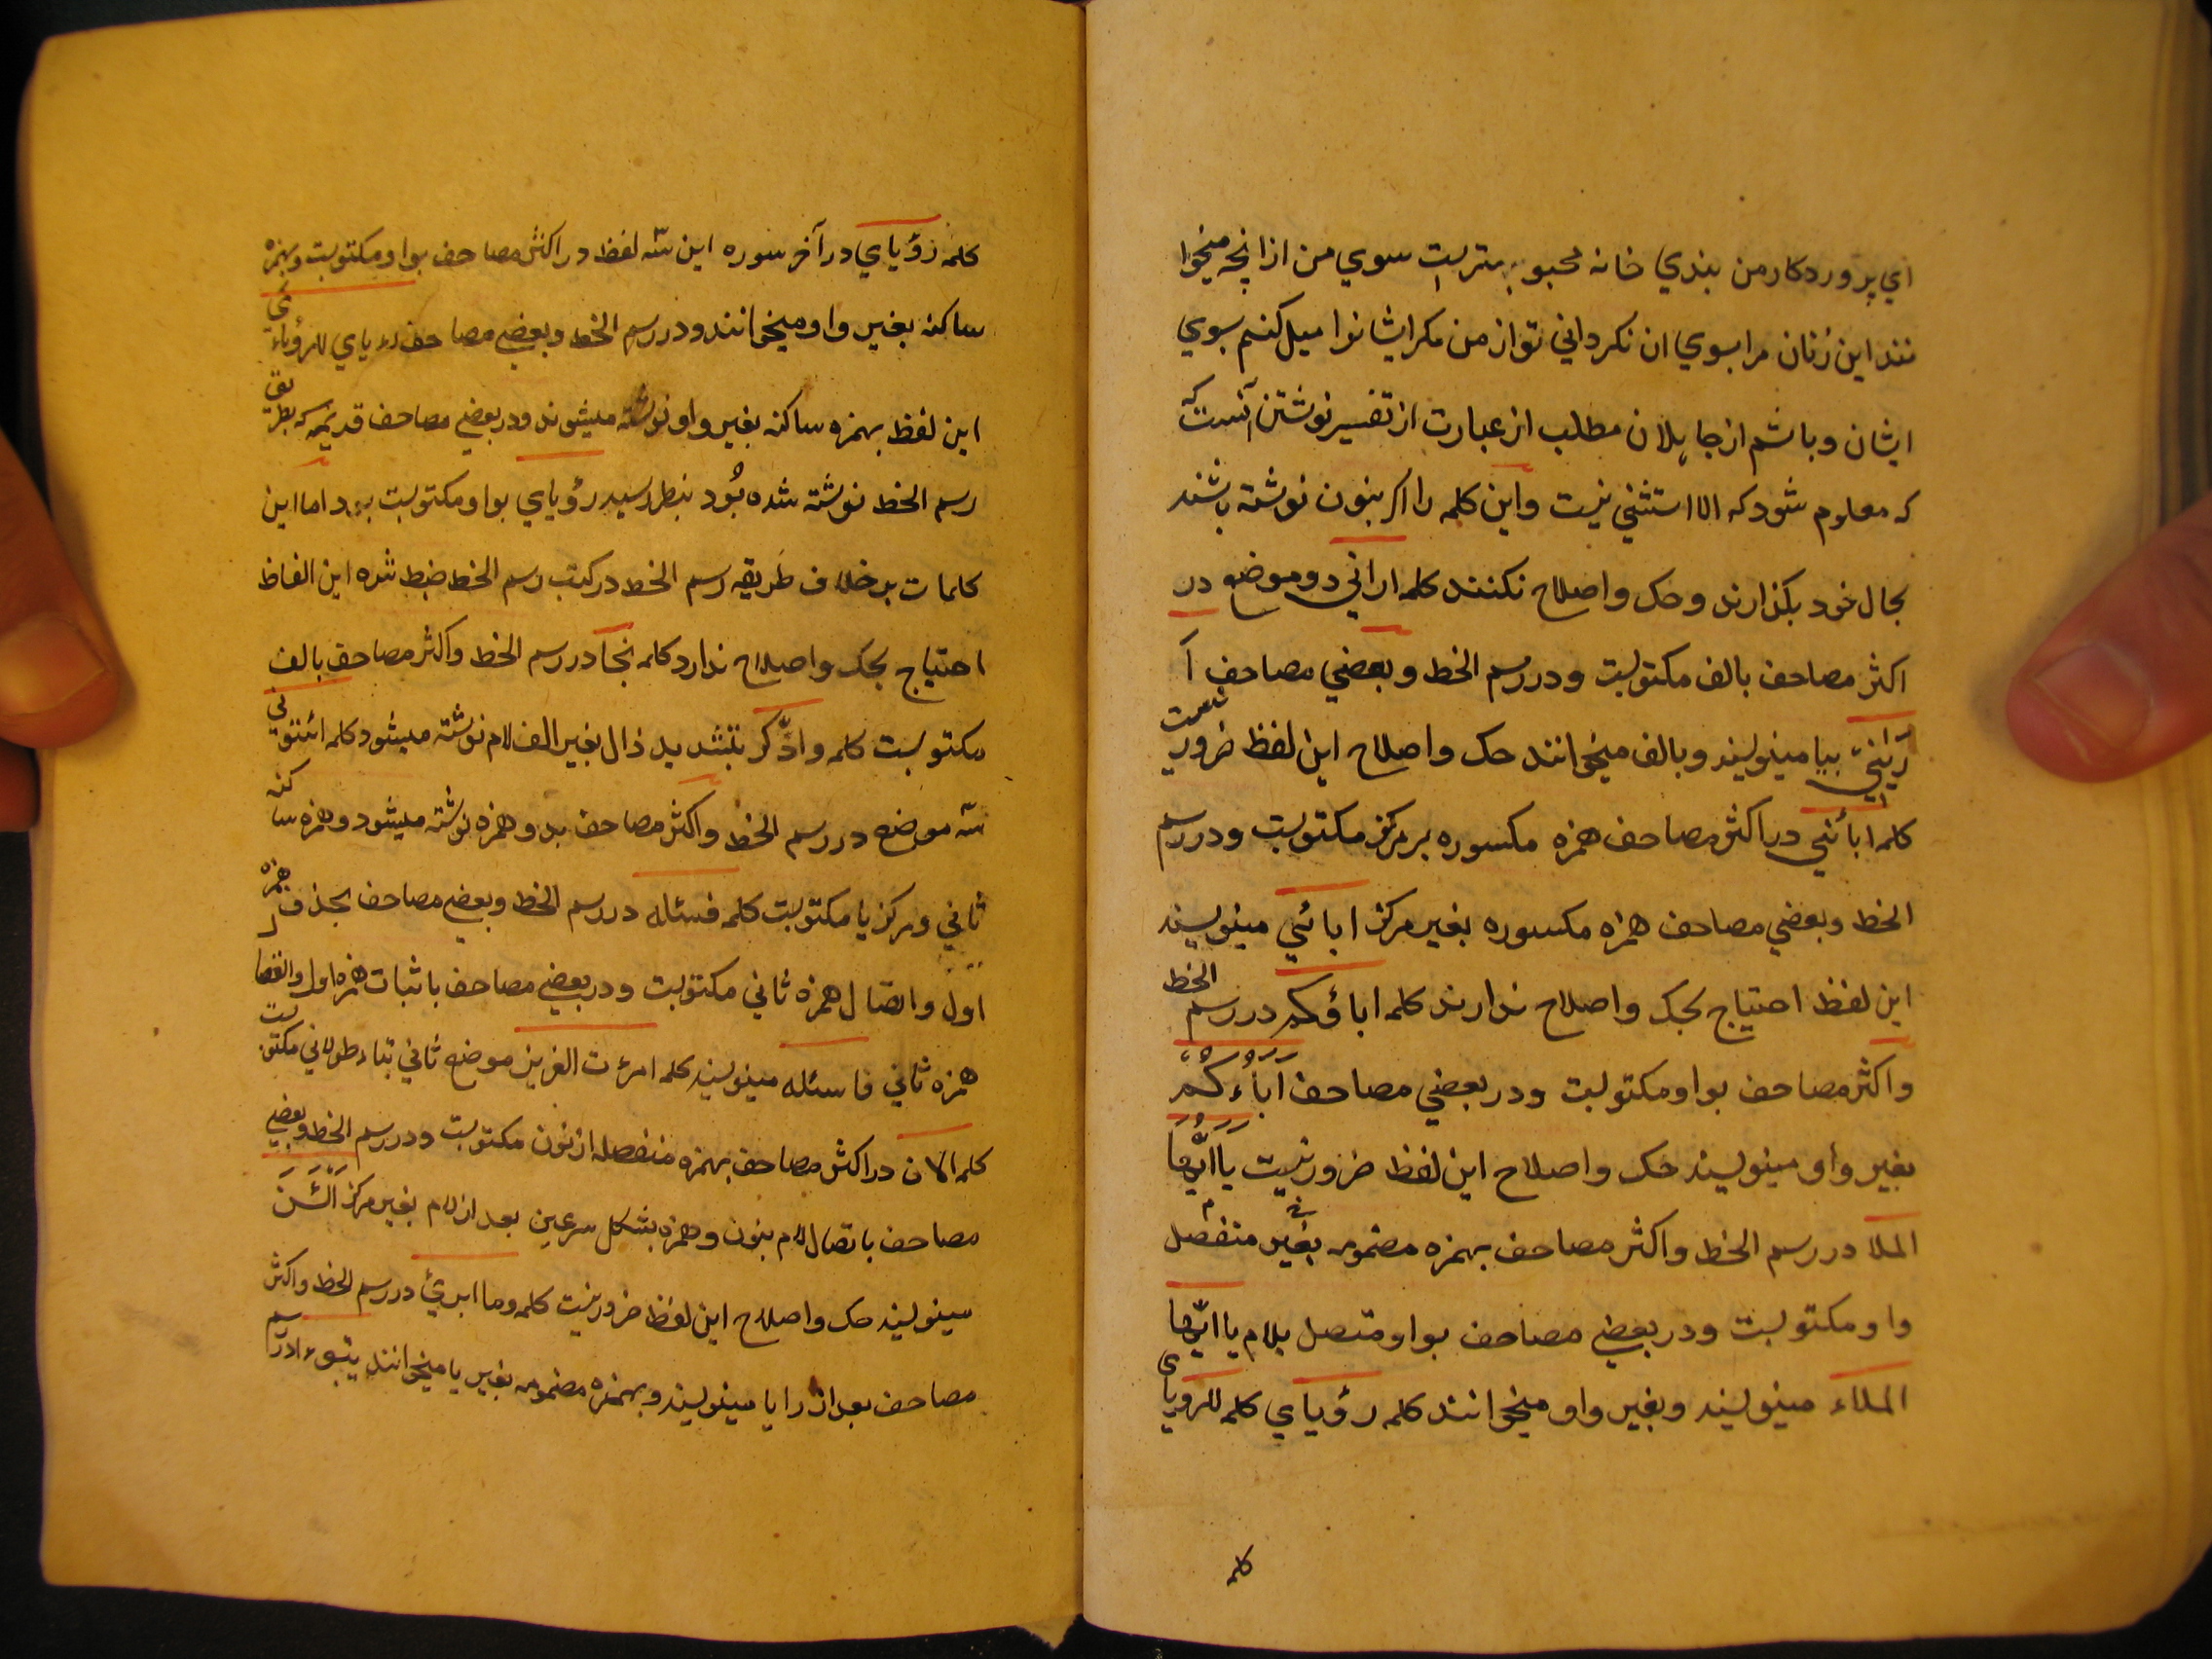 اي پروردكار من بندي خانه محبوبتر ست سوي من از انچه ميخوا
نند اين زنان مرا بسوي ان نكرداني تو از من مكر ايشانرا ميل كنم بسوي
ايشان و باشم از جاهلان مطلب از عبارت از تفسير نوشتن آنست كه
كه معلوم شود كه الا استثني نيست و اين كلمه را اكر بنون نوشته باشند
بحال خود بكذارند و حك و اصلاح نكنند كلمه اراني دو موضع در
اكثر مصاحف بالف مكتوبست و در رسم الخط و بعضي مصاحف ا
رٰىني بيا مينويسند و بالف ميخوانند حك و اصلاح اين لفظ ضرور نيست
كلمه ابائي در اكثر مصاحف همزه مكسوره بر مركز مكتوبست و در رسم
الخط و بعضي مصاحف همزه مكسوره بغير مركز ابائي مينويسند
اين لفظ احتياج بحك و اصلاح ندارند كلمه اباؤكم در رسم الخط
و اكثر مصاحف بواو مكتوبست و در بعضي مصاحف اٰباءُكُمْ
بغير واو مينويسند حك و اصلاح اين لفظ ضرور نيست يَا اَيُّهَا
الملا در رسم الخط و اكثر مصاحف بهمزه مضمومه بغير متفصل
واو مكتوبست و در بعضي مصاحف بواو متصل بلام يا ايّها
الملاء مينويسند و بغير واو ميخوانند كلمه رؤياي كلمه للرويا
كلمه
كلمه رؤياي در آخر سوره اين سه لفظ در اكثر مصاحف بواو مكتوبست و بهمزه
ساكنه بغير واو ميخوانند و در رسم الخط و بعضي مصاحف رءياي للرؤياء
اين لفظ بهمزه ساكنه بغير واو نوشته ميشوند و در بعضي مصاحف قديمه كه بطريق
رسم الخط نوشته شده بُود بنظر رسيد رؤياي بواو مكتوبست بود اما اين
كلمات برخلاف طريقه رسم الخط در كتب رسم الخط ضبط شده اين الفاظ
احتياج بحك و اصلاح ندارد كلمه نجا در رسم الخط و اكثر مصاحف بالف
مكتوبست كلمه وادّكر بتشديد ذال بغير الف لام نوشته ميشود كلمه ائتوني
سه موضع در رسم الخط و اكثر مصاحف بدو همزه نوشته ميشود و همزه ساكنه
ثاني و مركز يا مكتوبست كلمه فسئله در رسم الخط و بعضي مصاحف بحذف همزه
اول و اتصال همزه ثاني مكتوبست و در بعضي مصاحف باثبات همزه اول و انفصال
همزه ثاني فاسئله مينويسند كلمه امرءت العزيز موضع ثاني بتاء طولاني مكتوبست
كلمه الان در اكثر مصاحف بهمزه منفصله از نون مكتوبست و در رسم الخط و بعضي
مصاحف باتصال لام بنون و همزه بشكل سر عين بعد از لام بغير مركز الْئٰنَ
مينويسند حك و اصلاح اين لفظ ضرور نيست كلمه و ما ابرئ در رسم الخط و اكثر
مصاحف بعد از را يا مينويسند و بهمزه مضمومه بغير يا ميخوانند يتبوء در رسم